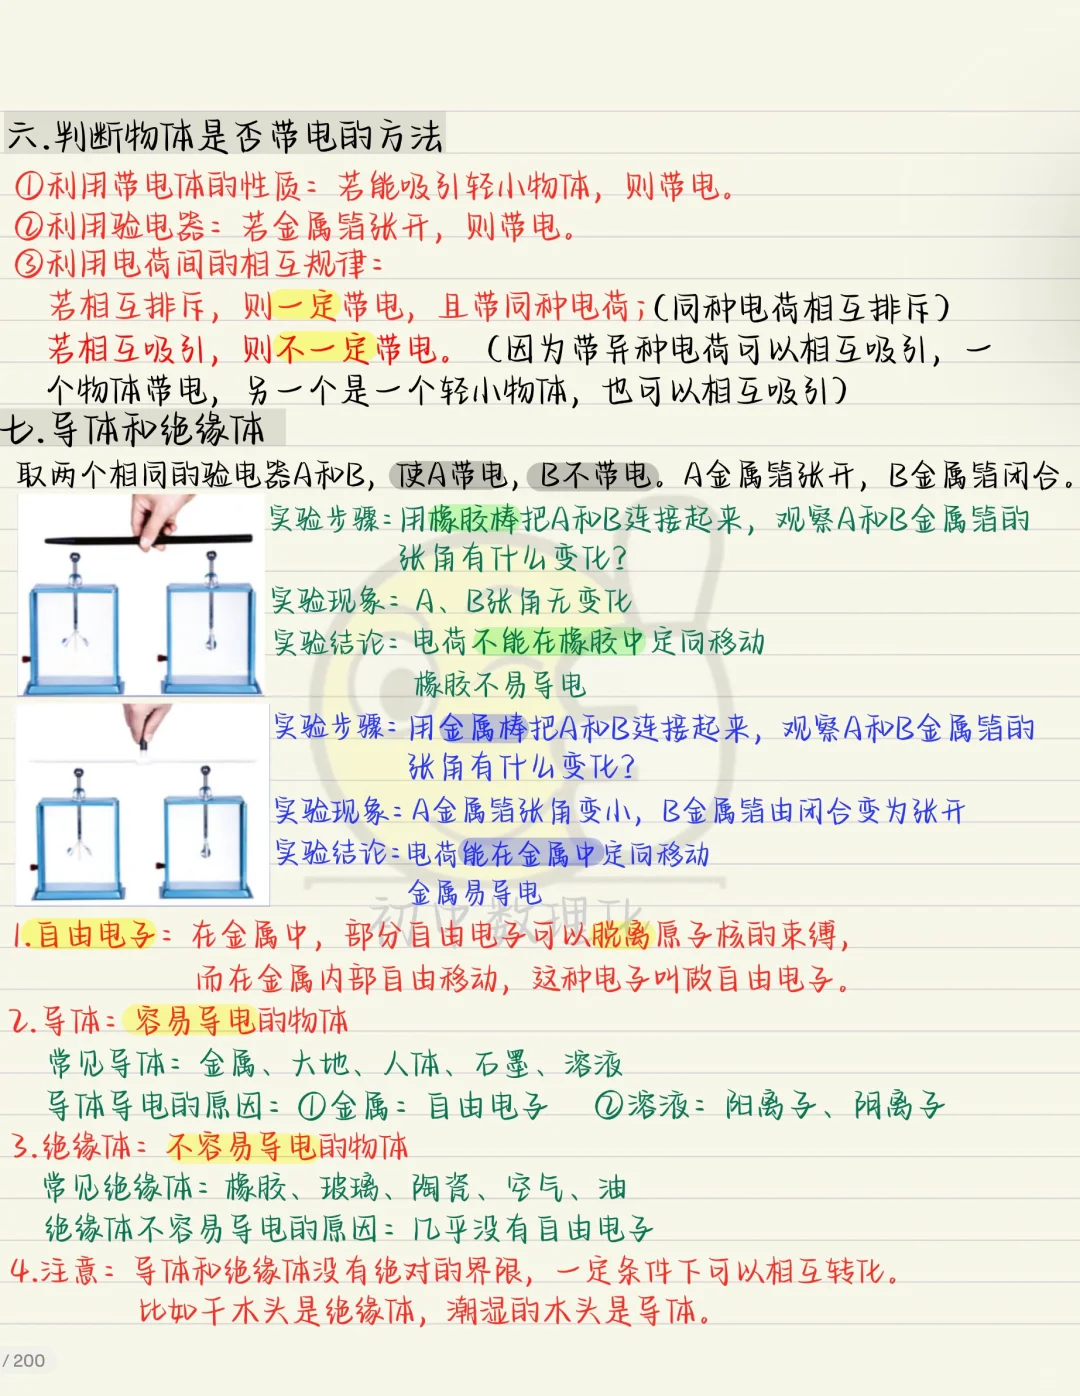 六.判断物体是否带电的方法
①利用带电体的性质：若能吸引轻小物体，则带电。
②利用验电器：若金属箔张开，则带电。
③利用电荷间的相互规律：
若相互排斥，则一定带电，且带同种电荷；（同种电荷相互排斥）
若相互吸引，则不一定带电。（因为带异种电荷可以相互吸引，一
个物体带电，另一个是一个轻小物体，也可以相互吸引）
七.导体和绝缘体
取两个相同的验电器A和B，使A带电，B不带电。A金属箔张开，B金属箔闭合。
实验步骤：用橡胶棒把A和B连接起来，观察A和B金属箔的
张角有什么变化？
实验现象：A、B张角无变化
实验结论：电荷不能在橡胶中定向移动
橡胶不易导电
实验步骤：用金属棒把A和B连接起来，观察A和B金属箔的
张角有什么变化？
实验现象：A金属箔张角变小，B金属箔由闭合变为张开
实验结论：电荷能在金属中定向移动
金属易导电
初中数理化
1.自由电子：在金属中，部分自由电子可以脱离原子核的束缚，
而在金属内部自由移动，这种电子叫做自由电子。
2.导体：容易导电的物体
常见导体：金属、大地、人体、石墨、溶液
导体导电的原因：①金属：自由电子 ②溶液：阳离子、阴离子
3.绝缘体：不容易导电的物体
常见绝缘体：橡胶、玻璃、陶瓷、空气、油
绝缘体不容易导电的原因：几乎没有自由电子
4.注意：导体和绝缘体没有绝对的界限，一定条件下可以相互转化。
比如干木头是绝缘体，潮湿的木头是导体。
/ 200